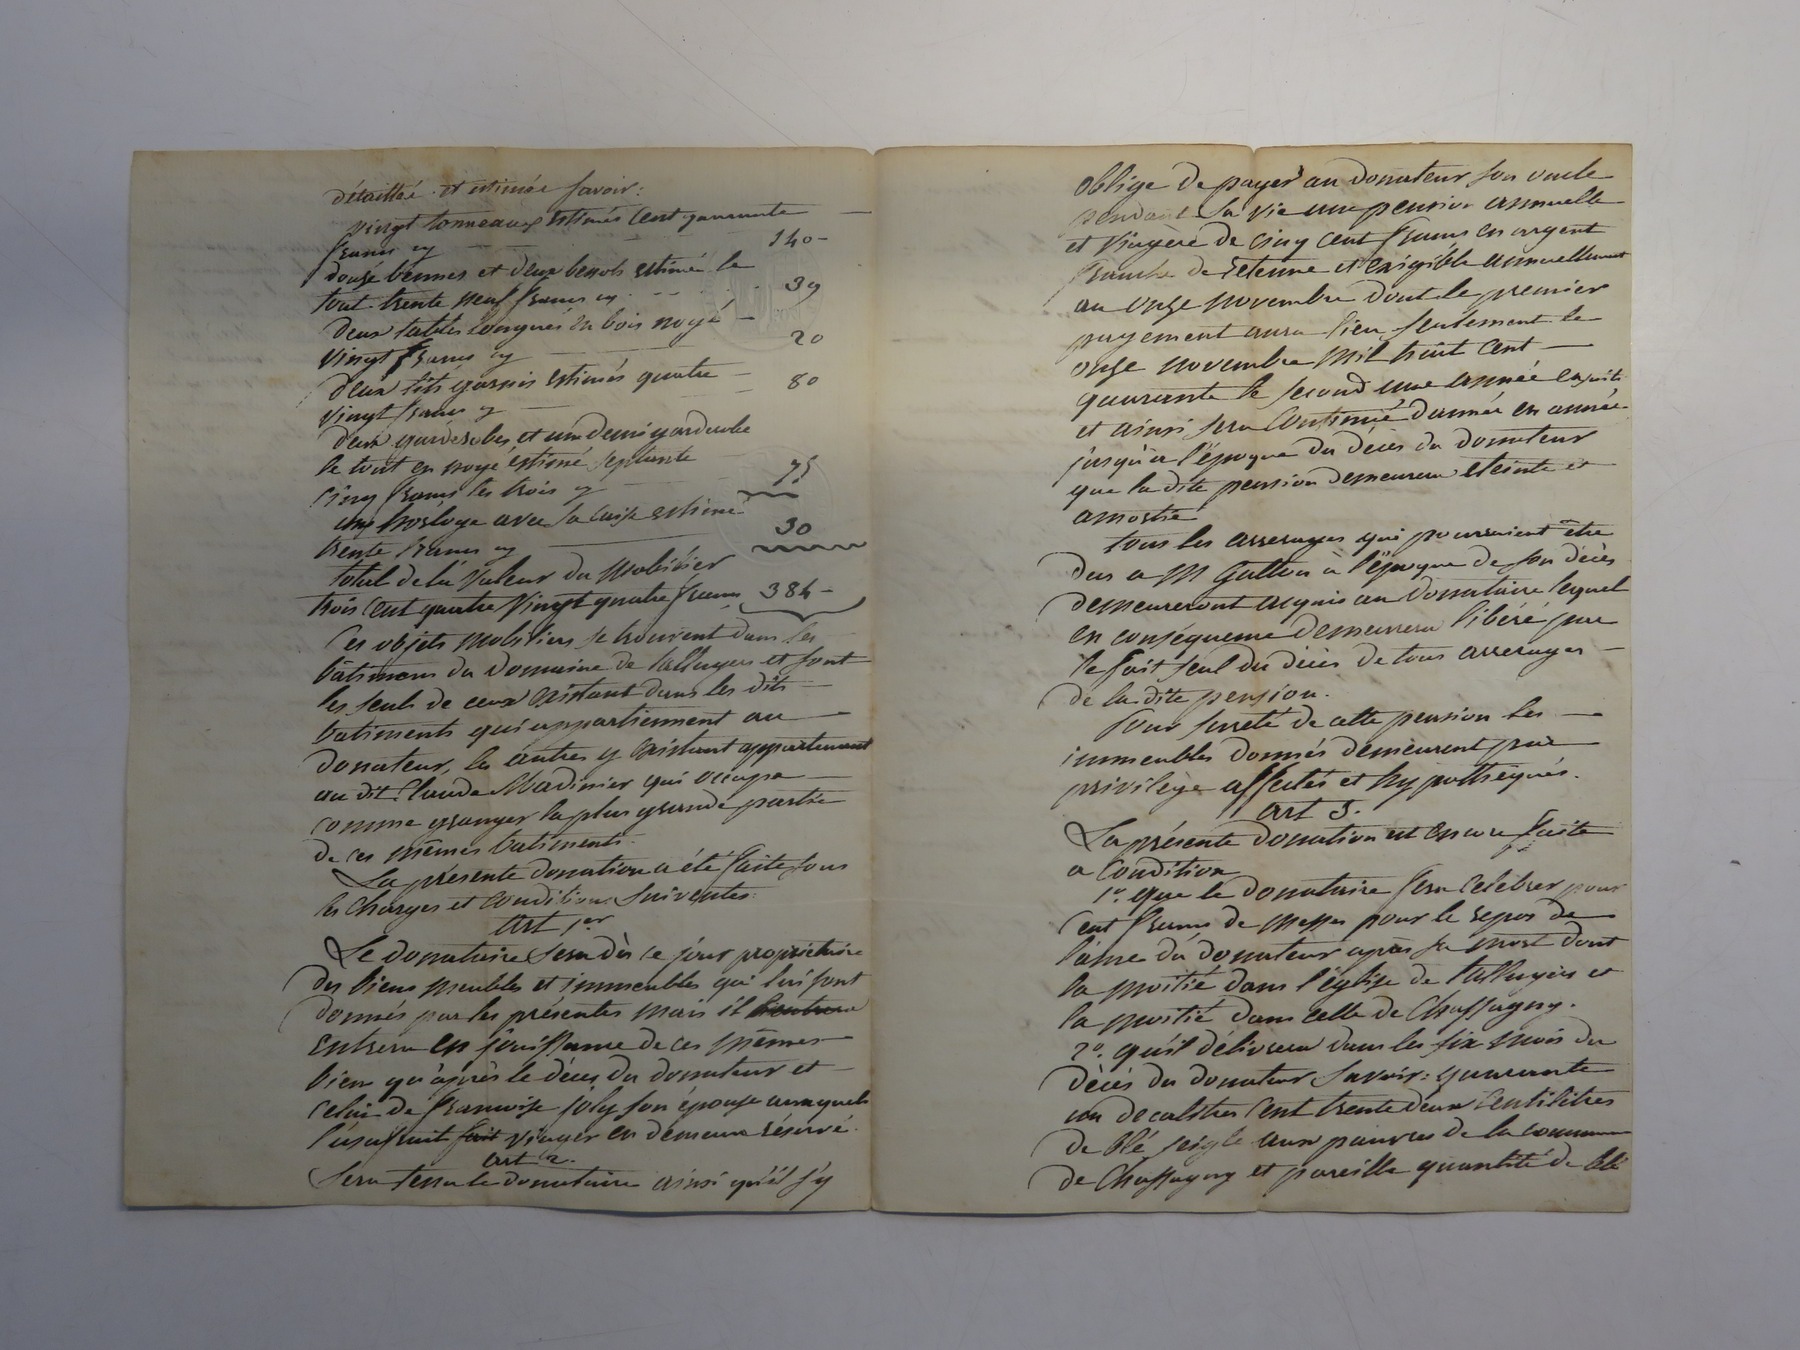 détaillée et estimée savoir:
vingt tonneaux estimés cent quarante
francs cy 140
douze bennes et deux bennots estimé le
tout trente neuf francs cy 39
deux tables longues en bois noyé
vingt francs cy 20
deux lits garnis estimés quatre
vingt francs cy 80
deux garderobes et un demi garderobe
le tout en noyé estimé septante
cinq francs les trois cy 75
une horloge avec sa caisse estimé
trente francs cy 30
total de la valeur du mobilier
trois cent quatre vingt quatre francs 384
Ces objets mobiliers se trouvent dans les
bâtimens du domaine de Talluyers et sont
les seuls de ceux existant dans les dits
batiments qui appartiennent au
donateur, les autres y existant appartenant
au dit Claude Madinier qui occupe
comme granger la plus grande partie
de ces mêmes batiments.
La présente donation a été faite sous
les charges et conditions suiventes:
Art 1er
Le donataire sera dès ce jour propriétaire
des biens meubles et immeubles qui lui sont
donnés par les présentes mais il
entrera en jouissance de ces mêmes
biens qu'après le décès du donateur et
celui de francoise joly son épouse auxquels
l'usufruit fait viager en demeure réservé.
art 2.
Sera tenu le donataire ainsi qu'il s'y
oblige de payer au donateur son oncle
pendant sa vie une pension annuelle
et viagere de cinq cent francs en argent
franche de retenue et exigible annuellement
au onze novembre dont le premier
payement aura lieu seulement le
onze novembre mil huit cent
quarante le second une année ensuite
et ainsi sera continué d'année en année
jusqu'a l'époque du décès du donateur
que la dite pension demeurera eteinte et
amortie
tous les arrerages qui pourraient être
dus a M Gullon à l'époque de son décès
demeureront acquis au donataire lequel
en conséquence demeurera libéré par
le fait seul du décès de tous arrerages
de la dite pension.
Pour sureté de cette pension les
immeubles donnés demeurent par
privilège affectés et hypothèqués.
art 3.
La présente donation est encore faite
a condition
1o. que le donataire fera célébrer pour
cent francs de messes pour le repos de
l'ame du donateur après sa mort dont
la moitié dans l'église de Talluyers et
la moitié dans celle de Chassagny.
2o. qu'il délivrera dans les six mois du
décès du donateur savoir: quarante
un decalitres cent trente deux centilitres
de blé seigle aux pauvres de la commune
de Chassagny et pareille quantité de blé